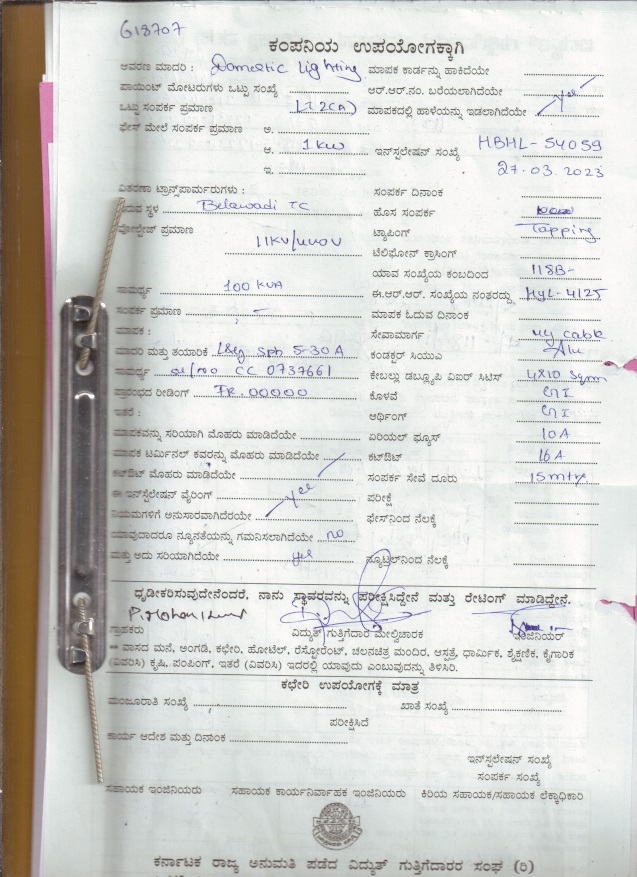 G18707
ಕಂಪನಿಯ ಉಪಯೋಗಕ್ಕಾಗಿ
ಆವರಣ ಮಾದರಿ : Domestic Lighting ಮಾಪಕ ಕಾರ್ಡನ್ನು ಹಾಕಿದೆಯೇ
ಪಾಯಿಂಟ್ ಮೋಟರುಗಳು ಒಟ್ಟು ಸಂಖ್ಯೆ ಆರ್.ಆರ್.ನಂ. ಬರೆಯಲಾಗಿದೆಯೇ
ಒಟ್ಟು ಸಂಪರ್ಕ ಪ್ರಮಾಣ LT 2(A) ಮಾಪಕದಲ್ಲಿ ಹಾಳೆಯನ್ನು ಇಡಲಾಗಿದೆಯೇ yes
ಫೇಸ್ ಮೇಲೆ ಸಂಪರ್ಕ ಪ್ರಮಾಣ ಅ.
ಆ. 1 kw ಇನ್‌ಸ್ಟಲೇಷನ್ ಸಂಖ್ಯೆ HBHL-54059
ಇ. 27.03.2023
ವಿತರಣಾ ಟ್ರಾನ್ಸ್‌ಪಾರ್ಮರುಗಳು : ಸಂಪರ್ಕ ದಿನಾಂಕ
ಸ್ಥಳ Belawadi TC ಹೊಸ ಸಂಪರ್ಕ
ವೋಲ್ಟೇಜ್ ಪ್ರಮಾಣ ಟ್ಯಾಪಿಂಗ್ Tapping
11KV/440V ಟೆಲಿಫೋನ್ ಕ್ರಾಸಿಂಗ್
ಯಾವ ಸಂಖ್ಯೆಯ ಕಂಬದಿಂದ 118B-
ಸಾಮರ್ಥ್ಯ 100 KVA ಈ.ಆರ್.ಆರ್. ಸಂಖ್ಯೆಯ ನಂತರದ್ದು HyL-4125
ಸಂಪರ್ಕ ಪ್ರಮಾಣ - ಮಾಪಕ ಓದುವ ದಿನಾಂಕ
ಮಾಪಕ : ಸೇವಾಮಾರ್ಗ ug cable
ಮಾದರಿ ಮತ್ತು ತಯಾರಿಕೆ L&G Sph 5-30A ಕಂಡಕ್ಟರ್ ಸಿಯುಎ Alu
ಸಾಮರ್ಥ್ಯ CC 0737661 ಕೇಬಲ್ಲು ಡಬ್ಲ್ಯೂಪಿ ಎಐರ್ ಸಿಟಿಸ್ 4x10 Sqmm
ಪ್ರಾರಂಭದ ರೀಡಿಂಗ್ FR. 00000 ಕೊಳವೆ GI
ಇತರೆ : ಆರ್ಥಿಂಗ್ GI
ಮಾಪಕವನ್ನು ಸರಿಯಾಗಿ ಮೊಹರು ಮಾಡಿದೆಯೇ ಏರಿಯಲ್ ಫ್ಯೂಸ್ 10A
ಮಾಪಕ ಟರ್ಮಿನಲ್ ಕವರನ್ನು ಮೊಹರು ಮಾಡಿದೆಯೇ ಕಟ್‌ಔಟ್ 16A
ಕಟ್‌ಔಟ್ ಮೊಹರು ಮಾಡಿದೆಯೇ ಸಂಪರ್ಕ ಸೇವೆ ದೂರು 15 mtr
ಈ ಇನ್‌ಸ್ಟಲೇಷನ್ ವೈರಿಂಗ್ yes ಪರೀಕ್ಷೆ
ನಿಯಮಗಳಿಗೆ ಅನುಸಾರವಾಗಿದೆಯೇ ಫೇಸ್‌ನಿಂದ ನೆಲಕ್ಕೆ
ಯಾವುದಾದರೂ ನ್ಯೂನತೆಯನ್ನು ಗಮನಿಸಲಾಗಿದೆಯೇ no
ಮತ್ತು ಅದು ಸರಿಯಾಗಿದೆಯೇ yes ನ್ಯೂಟ್ರಲ್‌ನಿಂದ ನೆಲಕ್ಕೆ
ಧೃಡೀಕರಿಸುವುದೇನೆಂದರೆ, ನಾನು ಸ್ಥಾವರವನ್ನು ಪರೀಕ್ಷಿಸಿದ್ದೇನೆ ಮತ್ತು ರೇಟಿಂಗ್ ಮಾಡಿದ್ದೇನೆ.
ಗ್ರಾಹಕರು ವಿದ್ಯುತ್ ಗುತ್ತಿಗೆದಾರ ಮೇಲ್ವಿಚಾರಕ ಇಂಜಿನಿಯರ್
** ವಾಸದ ಮನೆ, ಅಂಗಡಿ, ಕಛೇರಿ, ಹೋಟೆಲ್, ರೆಸ್ಟೋರೆಂಟ್, ಚಲನಚಿತ್ರ ಮಂದಿರ, ಆಸ್ಪತ್ರೆ, ಧಾರ್ಮಿಕ, ಶೈಕ್ಷಣಿಕ, ಕೈಗಾರಿಕ
(ವಿವರಿಸಿ) ಕೃಷಿ, ಪಂಪಿಂಗ್, ಇತರೆ (ವಿವರಿಸಿ) ಇದರಲ್ಲಿ ಯಾವುದು ಎಂಬುವುದನ್ನು ತಿಳಿಸಿರಿ.
ಕಛೇರಿ ಉಪಯೋಗಕ್ಕೆ ಮಾತ್ರ
ಮಂಜೂರಾತಿ ಸಂಖ್ಯೆ ಖಾತೆ ಸಂಖ್ಯೆ
ಪರೀಕ್ಷಿಸಿದೆ
ಕಾರ್ಯ ಆದೇಶ ಮತ್ತು ದಿನಾಂಕ
ಇನ್‌ಸ್ಟಲೇಷನ್ ಸಂಖ್ಯೆ
ಸಂಪರ್ಕ ಸಂಖ್ಯೆ
ಸಹಾಯಕ ಇಂಜಿನಿಯರು ಸಹಾಯಕ ಕಾರ್ಯನಿರ್ವಾಹಕ ಇಂಜಿನಿಯರು ಕಿರಿಯ ಸಹಾಯಕ/ಸಹಾಯಕ ಲೆಕ್ಕಾಧಿಕಾರಿ
ಕರ್ನಾಟಕ ರಾಜ್ಯ ಅನುಮತಿ ಪಡೆದ ವಿದ್ಯುತ್ ಗುತ್ತಿಗೆದಾರರ ಸಂಘ (ರಿ)